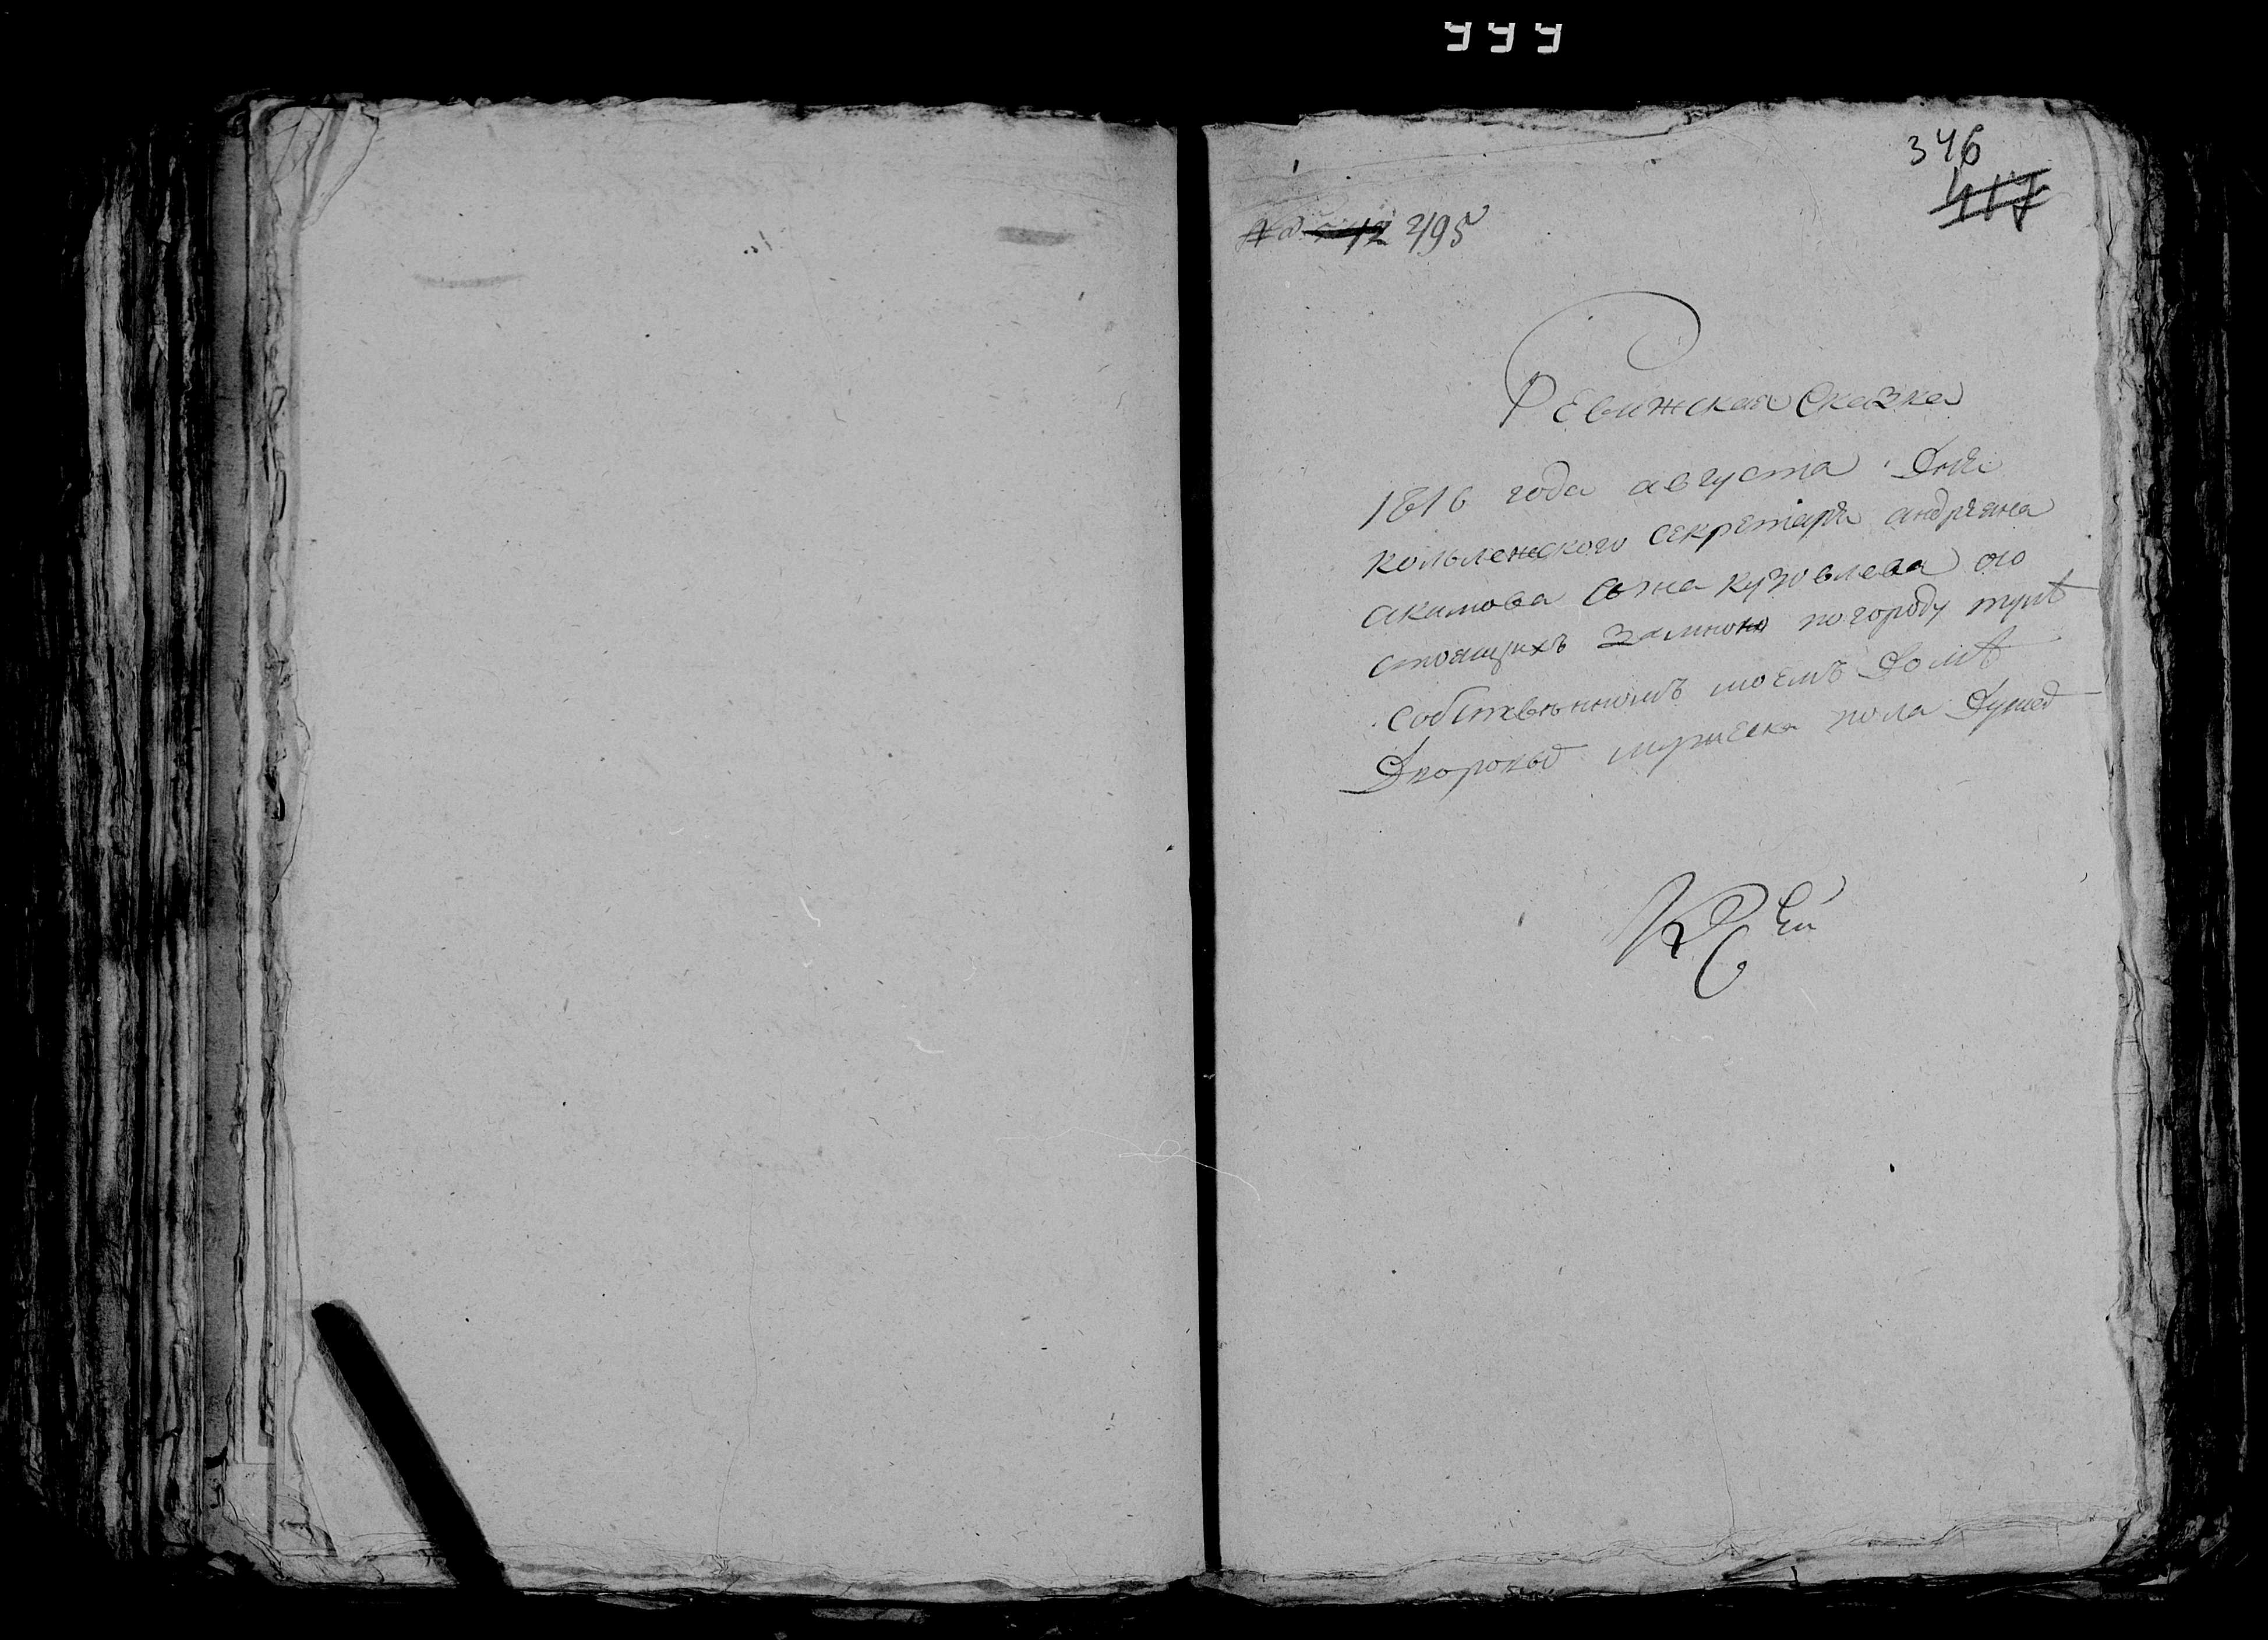 346
417
№ 12 495
Ревижская Сказка
1816 года августа Дня
Кольлежского секретаря андреяна
акимова сына кузовлева о со
стоящихъ замною погороду тулѣ
Собственномъ моемъ Домѣ
Дворовыхъ мужеска пола Душъ